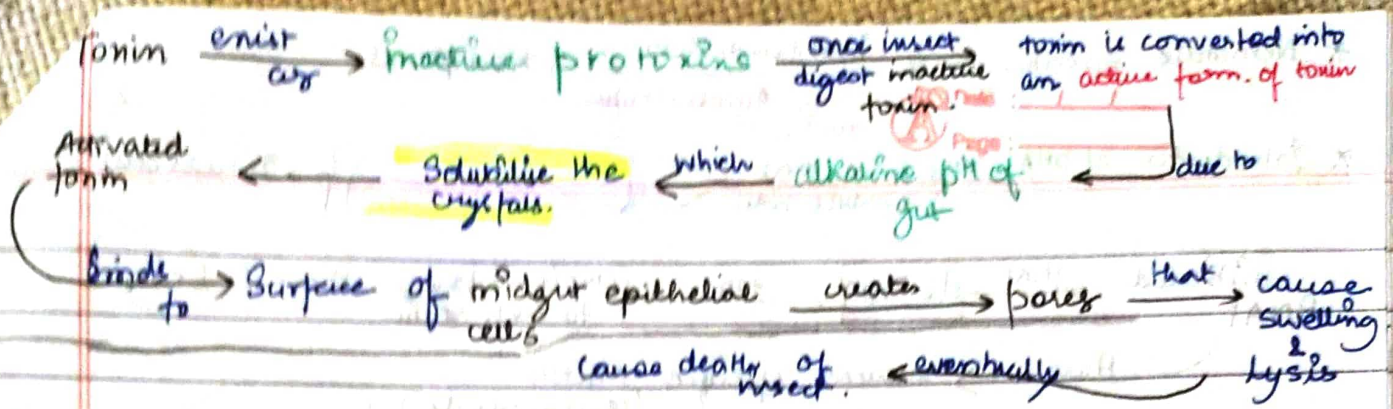 Toxin exist as → inactive protoxins once insect digest inactive toxin. → toxin is converted into an active form. of toxin
Date :
Page :
due to → alkaline pH of gut which → Solubilise the crystals. → Activated toxin
binds to → Surface of midgut epithelial cells creates → pores that → cause swelling & lysis
eventually → cause death of insect.